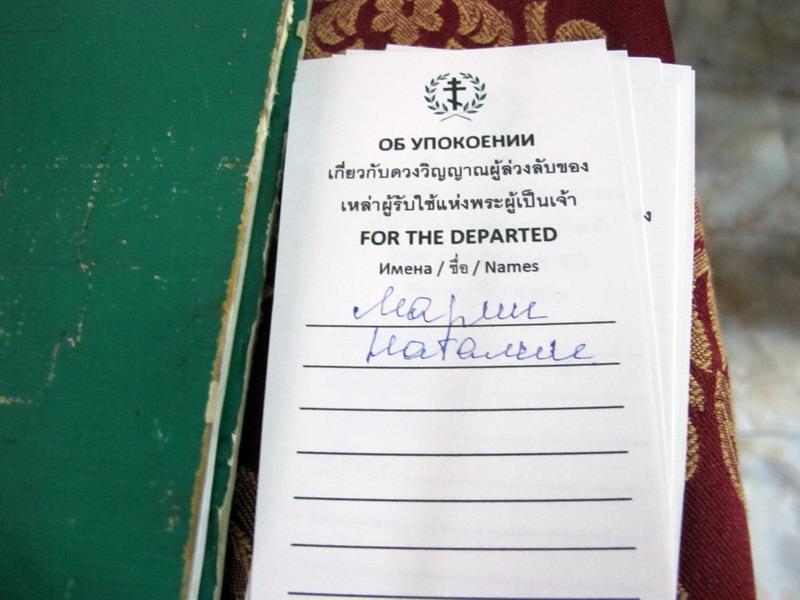 ОБ УПОКОЕНИИ
เกี่ยวกับดวงวิญญาณผู้ล่วงลับของ
เหล่าผู้รับใช้แห่งพระผู้เป็นเจ้า
FOR THE DEPARTED
Имена / ชื่อ / Names
Марии
Наталии
ง